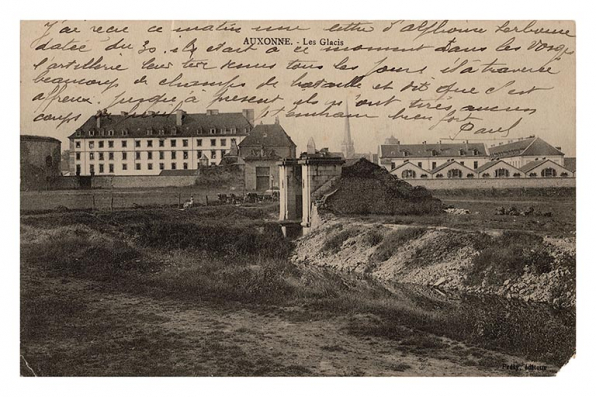 J'ai reçu ce matin une lettre d'Alphonse Sorbonne
datée du 30. ils était à ce moment dans les Vosges
AUXONNE. - Les Glacis
l'artillerie leur tire dessus tous les jours, il a traversé
beaucoup de champs de bataille et dit que c'est
affreux, jusqu'à présent ils n'ont tirés aucuns
coups, il est bien portant
Paul